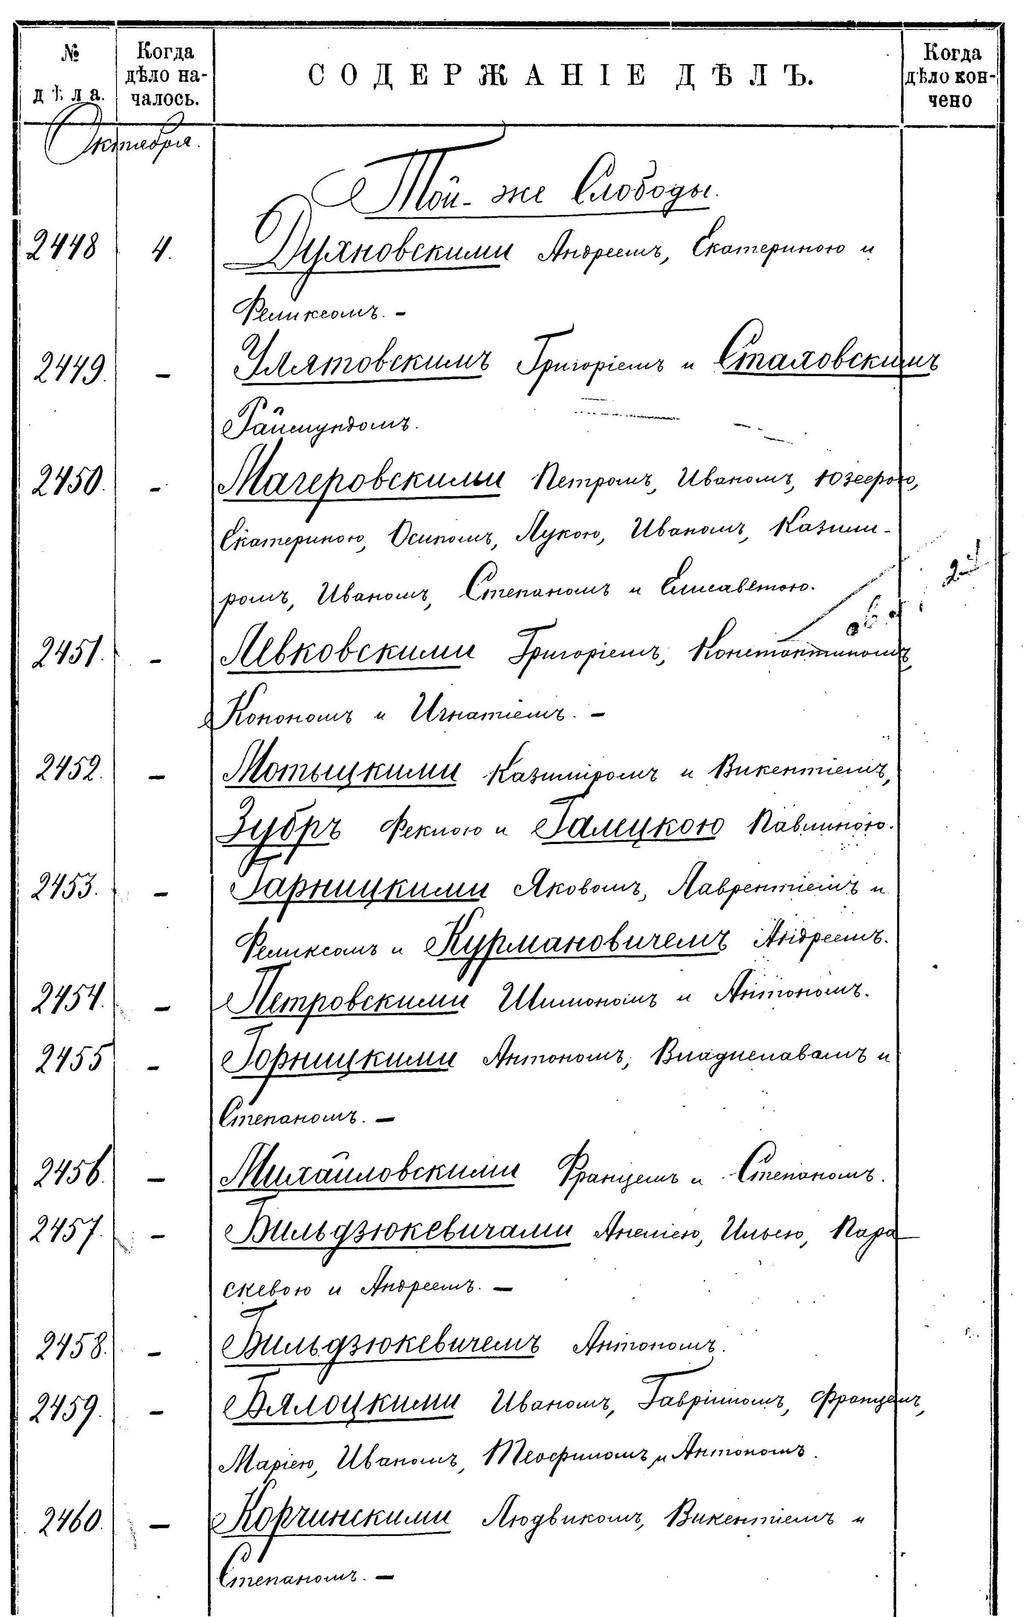 № дѣла.
Когда дѣло на-
чалось.
СОДЕРЖАНІЕ ДѢЛЪ.
Когда дѣло кон-
чено
Октября.
Той-же Слободы.
2448 4. Духновскими Андреемъ, Екатериною и
Феликсомъ. –
2449. – Улятовскимъ Григоріемъ и Стаховскимъ
Раймундомъ.
2450. – Магеровскими Петромъ, Иваномъ, Юзефою,
Екатериною, Осипомъ, Лукою, Иваномъ, Казими-
ромъ, Иваномъ, Степаномъ и Елисаветою.
2451. – Левковскими Григоріемъ, Константиномъ,
Конономъ и Игнатіемъ. –
2452. – Мотыцкими Казиміромъ и Викентіемъ,
Зубръ Феклою и Галецкою Павлиною.
2453. – Гарницкими Яковомъ, Лаврентіемъ и
Феликсомъ и Курмановичемъ Андреемъ.
2454. – Петровскими Шимономъ и Антономъ.
2455 – Горницкими Антономъ, Владиславомъ и
Степаномъ. –
2456. – Михайловскими Францемъ и Степаномъ.
2457. – Бильдзюкевичами Анелею, Ильею, Пара
скевою и Андреемъ. –
2458. – Бильдзюкевичемъ Антономъ.
2459. – Бялоцкими Иваномъ, Гавріиломъ, Францемъ,
Маріею, Иваномъ, Теофиломъ и Антономъ.
2460. – Корчинскими Людвикомъ, Викентіемъ и
Степаномъ. –